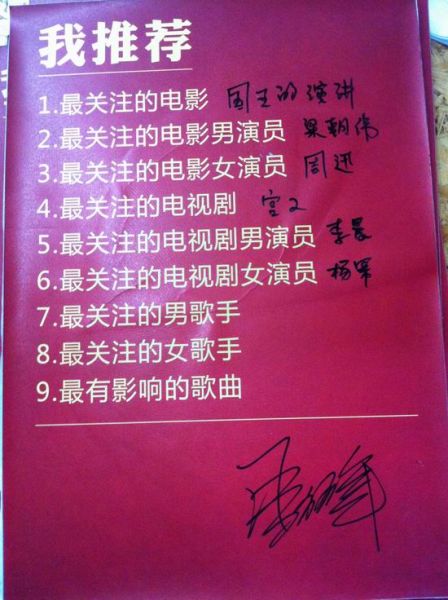 我推荐
1.最关注的电影 国王的演讲
2.最关注的电影男演员 梁朝伟
3.最关注的电影女演员 周迅
4.最关注的电视剧 宫2
5.最关注的电视剧男演员 李晨
6.最关注的电视剧女演员 杨幂
7.最关注的男歌手
8.最关注的女歌手
9.最有影响的歌曲